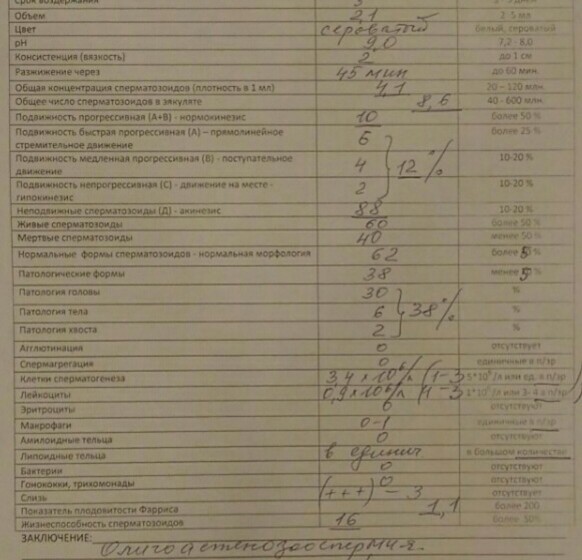 Срок воздержания 3
Объем 2,1 2-5 мл
Цвет сероватый белый, сероватый
pH 9,0 7,2 - 8,0
Консистенция (вязкость) 2 до 1 см
Разжижение через 45 мин до 60 мин.
Общая концентрация сперматозоидов (плотность в 1 мл) 4,1 20 – 120 млн.
Общее число сперматозоидов в эякуляте 8,6 40 - 600 млн.
Подвижность прогрессивная (А+В) - нормокинезис 10 более 50 %
Подвижность быстрая прогрессивная (А) – прямолинейное 6 более 25 %
стремительное движение
Подвижность медленная прогрессивная (В) - поступательное 4 12% 10-20 %
движение
Подвижность непрогрессивная (С) - движение на месте - 2 10-20 %
гипокинезис
Неподвижные сперматозоиды (Д) - акинезис 88 10-20 %
Живые сперматозоиды 60 более 50 %
Мертвые сперматозоиды 40 менее 50 %
Нормальные формы сперматозоидов - нормальная морфология 62 более 5 %
Патологические формы 38 менее 5 %
Патология головы 30 %
Патология тела 6 38% %
Патология хвоста 2 %
Агглютинация 0 отсутствует
Спермагрегация 0 единичные в п/зр
Клетки сперматогенеза 3,4 × 10⁶/л (1-3 5*10⁶ /л или ед. в п/зр
Лейкоциты 0,9 × 10⁶/л (1-3 1*10⁶ /л или 3- 4 в п/зр)
Эритроциты 0 отсутствуют
Макрофаги 0-1 единичные в п/зр
Амилоидные тельца 0 отсутствуют
Липоидные тельца в единич в большом количестве
Бактерии 0 отсутствуют
Гонококки, трихомонады 0 отсутствуют
Слизь (+++) - 3 отсутствует
Показатель плодовитости Фарриса 1,1 более 200
Жизнеспособность сперматозоидов 16 более 50%
ЗАКЛЮЧЕНИЕ: Олигоастенозооспермия.